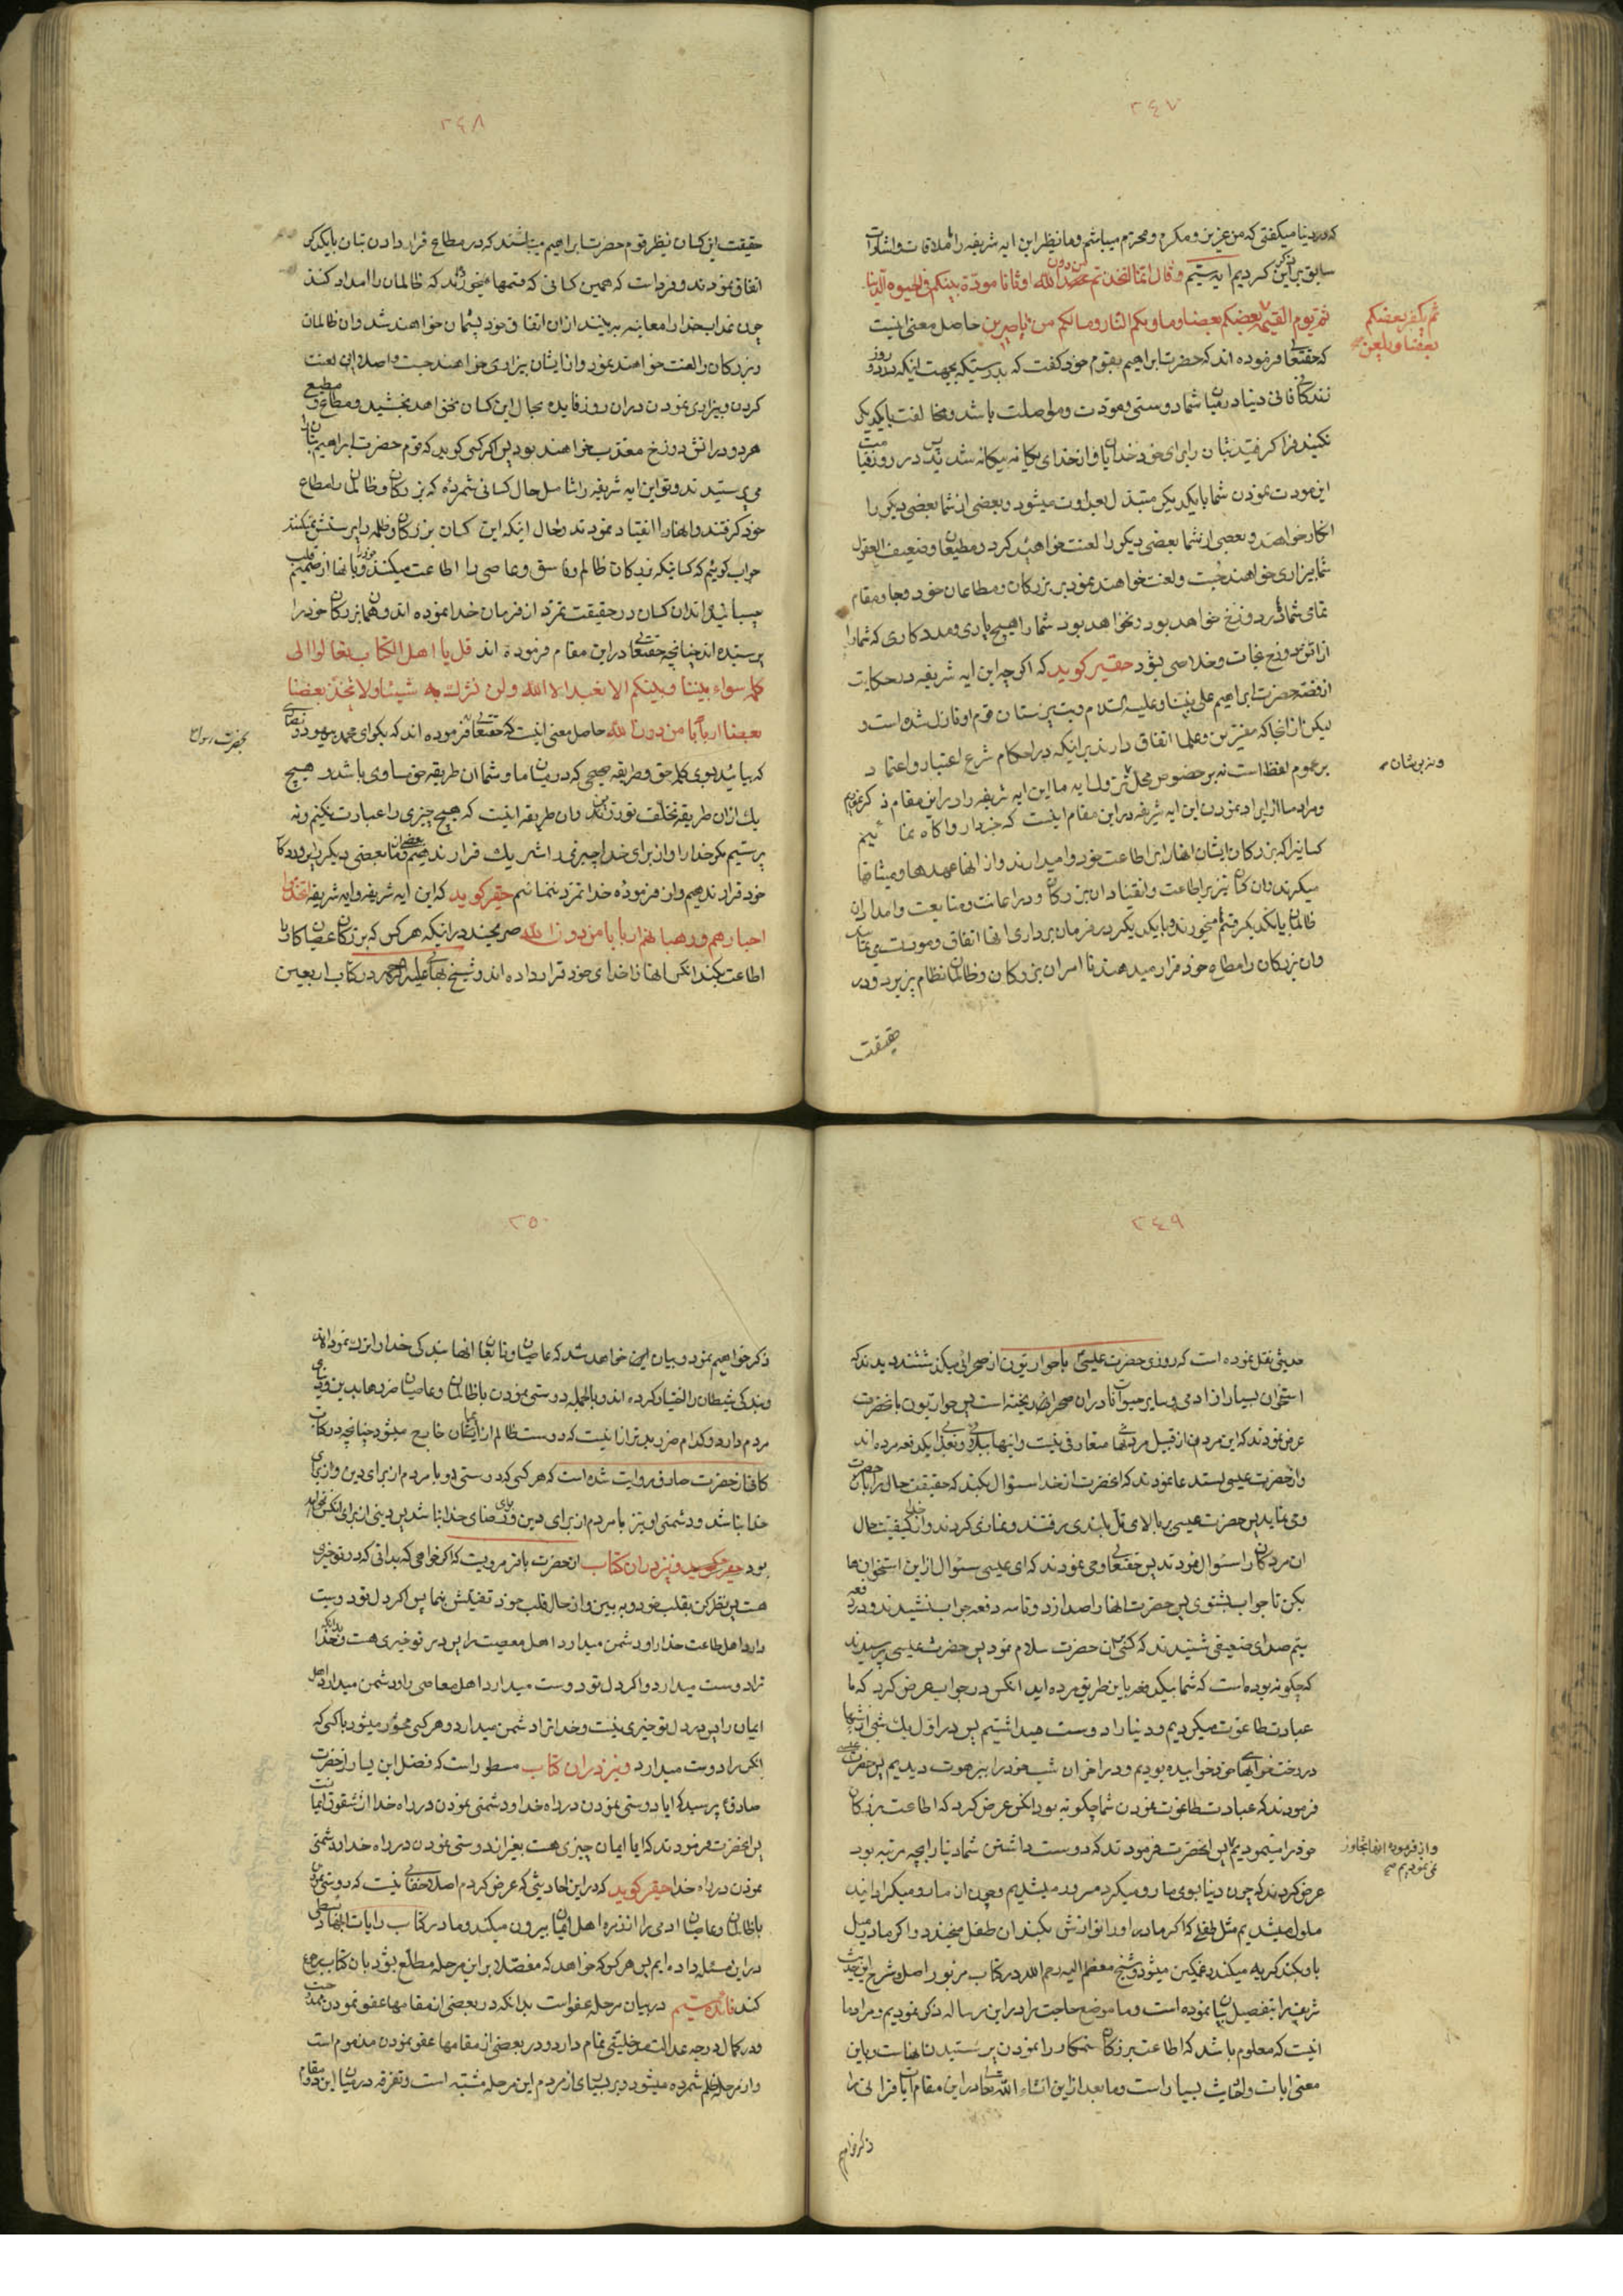 ٢٤٧
که در دنیا میگفتی که من عزیز و مکرم و محترم میباشم و ما نظیر این ایه شریفه را
سابق بر این ذکر کردیم ایه بیستم وقال انما اتخذتم من دون الله اوثانا مودة بینکم فی الحیوة الدنیا
ثم یوم القیمة یکفر بعضکم ببعض و یلعن
بعضکم بعضا وماویکم النار ومالکم من ناصرین حاصل معنی اینست
که حقتعالی فرموده اند که حضرت ابراهیم بقوم خود گفت که بدرستیکه بجهت اینکه در دو روز
زندگانی فانی دنیا در میان شما دوستی و مودت و مواصلت باشد و مخالفت بایکدیگر
نکنید فرا گرفتید بتان را برای خود خدایان و از خدای یگانه بیگانه شدید پس در روز قیامت
این مودت نمودن شما بایکدیگر متبدل بعداوت میشود و بعضی از شما بعضی دیگر را
انکار خواهند و بعضی از شما بعضی دیگر را لعنت خواهید کرد و مطیعان و ضعیف العقول
شما بیزاری خواهند جست و لعنت خواهند نمود بر بزرگان و مطاعان خود و جا و مقام
تمامی شما در دوزخ خواهد بود و نخواهد بود شما را هیچ یاری و مددکاری که شما را
از اتش دوزخ نجات و خلاصی بدهد حقیر گوید که اگر چه این ایه شریفه در حکایت
از قصه حضرت ابراهیم علی نبینا وعلیه السلام و بت پرستان قوم او نازل شده است و
لیکن از انجا که مفسرین و علما اتفاق دارند بر اینکه در احکام شرع اعتبار و اعتماد
بر عموم لفظ است نه بر خصوص محل نزول ایه ما این ایه شریفه را در این مقام ذکر نمودیم
و مراد ما از ایراد نمودن این ایه شریفه در این مقام اینست که خبردار و اگاه نمائیم
کسانیرا که بزرگان ایشان انها را بر اطاعت خود وامیدارند و از انها عهدها و میثاقها
میگیرند و ان کسان نیز بر اطاعت و انقیاد ان بزرگان و در اعانت و متابعت و امداد ان
ظالمان بایکدیگر قسم میخورند و بایکدیگر در فرمان برداری انها اتفاق و مودت می نمایند
وان بزرگان را مطاع خود قرار میدهند تا امر ان بزرگان و ظالمان نظام پزیرد و در
حقیقت
٢٤٨
حقیقت این کسان نظیر قوم حضرت ابراهیم میباشند که در مطاع قرار دادن بتان بایکدیگر
اتفاق نمودند و فرداست که همین کسانی که قسمها میخورند که ظالمان را امداد کنند
چون عذاب خدا را معاینه ببینند از ان اتفاق خود پشیمان خواهند شد و ان ظالمان
و بزرگان را لعنت خواهند نمود و از ایشان بیزاری خواهند جست و اصلا این لعنت
کردن و بیزاری نمودن در ان روز فایده بحال این کسان نخواهد بخشید و مطاع و مطیع
هر دو در اتش دوزخ معذب خواهند بود پس اگر کسی گوید که قوم حضرت ابراهیم بتان را
می پرستیدند و تو این ایه شریفه را شامل حال کسانی شمرده که بزرگان و ظالمان را مطاع
خود گرفتند و انها را انقیاد نمودند و حال اینکه این کسان بزرگان و ظلمه را پرستش نمیکنند
جواب گوئیم که کسانیکه بزرگان ظالم و فاسق و عاصی را اطاعت میکنند و خود را بانها از صمیم قلب
میچسبانند ان کسان در حقیقت تمرد از فرمان خدا نموده اند و همان بزرگان خود را
پرستیده اند چنانچه حقتعالی در این مقام فرموده اند قل یا اهل الکتاب تعالوا الی
کلمة سواء بیننا وبینکم الا نعبد الا الله ولن نشرک به شیئا ولا یتخذ بعضنا
بعضا اربابا من دون الله حاصل معنی اینست که حقتعالی فرموده اند که بگو ای محمد بیهود و نصاری
بحضرت رسول
که بیائید بسوی کلمه حق و طریقه صحیحی که در میان ما و شما ان طریقه حق مساوی باشد و هیچ
یک از ان طریقه تخلف نورزند و ان طریقه اینست که هیچ چیزی را عبادت نکنیم و نه
پرستیم مگر خدا را و از برای خدا چیزی را شریک قرار ندهیم و بعضی از ما بعضی دیگر را پروردگار
خود قرار ندهیم و از فرموده خدا تمرد ننمائیم حقیر گوید که این ایه شریفه و ایه شریفه اتخذوا
احبارهم ورهبانهم اربابا من دون الله صریحند در اینکه هر کس که بزرگان عصیان کار را
اطاعت بکند انکس انها را خدای خود قرار داده اند و شیخ بهائی علیه الرحمه در کتاب اربعین
٢٤٩
حدیثی نقل نموده است که روزی حضرت عیسی با حواریون از صحرائی میگذشتند دیدند که
استخوان بسیار از ادمی و سایر حیوانات در ان صحرا ریخته است پس حواریون بانحضرت
عرض نمودند که این مردم از قبیل مردنهای متعارفی نیست و اینها ببلائی و بعذابی یکدفعه مرده اند
و از حضرت عیسی استدعا نمودند که انحضرت از خدا سئوال بکند که حقیقت حال را بانحضرت
وحی نماید پس حضرت عیسی ببالای تل بلندی رفتند و نمازی کردند و از خدا کیفیت حال
ان مردگان را سئوال نمودند پس حقتعالی وحی نمودند که ای عیسی سئوال از این استخوان ها
بکن تا جواب بشنوی پس حضرت انها را صدا زد و تا سه دفعه جواب نشنیدند و در دفعه
سیم صدای ضعیفی شنیدند که کسی بان حضرت سلام نمود پس حضرت عیسی پرسیدند
که چگونه بوده است که شما بیک دفعه باین طریق مرده اید انکس در جواب عرض کرد که ما
عبادت طاغوت میکردیم و دنیا را دوست میداشتیم پس در اول یک شبی از شبها
در رخت خوابهای خود خوابیده بودیم و در اخر ان شب خود را ببرهوت دیدیم پس حضرت عیسی
فرمودند که عبادت طاغوت نمودن شما چگونه بود انکس عرض کرد که اطاعت بزرگان
خود را مینمودیم پس انحضرت فرمودند که دوست داشتن شما دنیا را بچه مرتبه بود
و از فرموده انها تجاوز
نمی نمودیم صح
عرض کردند که چون دنیا بسوی ما رو میکرد مسرور میشدیم و چون از ما رو میگردانید
ملول میشدیم مثل طفلی که اگر مادر او را نوازش بکند ان طفل میخندد و اگر مادر میل
باو نکند گریه میکند و غمگین میشود و شیخ معظم الیه رحمه الله در کتاب مزبور اصل و شرح این حدیث
شریف را بتفصیل بیان نموده است و ما موضع حاجت را در این رساله ذکر نمودیم و مراد ما
اینست که معلوم باشد که اطاعت بزرگان ستمکار را نمودن پرستیدن انهاست و باین
معنی ایات و احادیث بسیار است و ما بعد از این انشاء الله تعالی در این مقام ایات قرانی را
ذکر خواهیم
٢٥٠
ذکر خواهیم نمود و بیان این خواهد شد که عاصیان و تابعان انها بندگی خدا را ترک نموده اند
و بندگی شیطان را اختیار کرده اند و بالجمله دوستی نمودن با ظالمان و عاصیان ضررها بدین و دنیای
مردم دارد و کدام ضرر بدتر از اینست که دوست ظالم از ایمان خارج میشود چنانچه در کتاب
کافی از حضرت صادق روایت شده است که هر کسی که دوستی او با مردم از برای دین و از برای
خدا نباشد و دشمنی او نیز با مردم از برای دین و رضای خدا نباشد پس دینی از برای انکس نخواهد
بود حقیر گوید و نیز در ان کتاب از حضرت باقر مرویست که اگر خواهی که بدانی که در تو خیری
هست پس نظر کن بقلب خود و به بین و از حال قلب خود تفتیش بنما پس اگر دل تو دوست
دارد اهل طاعت خدا را و دشمن میدارد اهل معصیت را پس در تو خیری هست و خدا
ترا دوست میدارد و اگر دل تو دوست میدارد اهل معاصی را و دشمن میدارد اهل
ایمان را پس در دل تو خیری نیست و خدا ترا دشمن میدارد و هر کسی محشور میشود با کسی که
انکس را دوست میدارد و نیز در ان کتاب مسطور است که فضل ابن یسار از حضرت
صادق پرسید که ایا دوستی نمودن در راه خدا و دشمنی نمودن در راه خدا از شقوق ایمانست
پس انحضرت فرمودند که ایا ایمان چیزی هست بغیر از دوستی نمودن در راه خدا و دشمنی
نمودن در راه خدا حقیر گوید که در این احادیثی که عرض کردم اصلا خفائی نیست که دوستی نمودن
با ظالمان و عاصیان ادمی را از زمره اهل ایمان بیرون میکند و ما در کتاب رایات الجهاد بسطی
در این مسئله داده ایم پس هر کس که خواهد که مفصلا بر این مرحله مطلع بشود بان کتاب رجوع
کند فائده بیستم در بیان مرحله عفو است بدانکه در بعضی از مقامها عفو نمودن
و در کمال درجه عدالت مدخلیتی تمام دارد و در بعضی از مقامها عفو نمودن مذموم است
و از مرحله ظلم شمرده میشود در بسیای از مردم این مرحله مشتبه است و تفرقه در میان این دو مقام